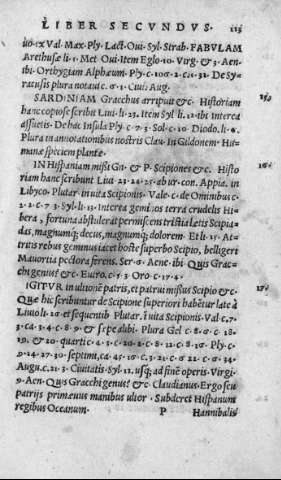 LIBER SECVNDVS. 113
uo.ix Val. Max. Ply. Lact. Oui. Syl. Strab. FABVLAM
Arethusæ li.1. Met Oui. Item Eglo.10. Virg. & 3. Aen.
ibi. Orthygiam Alphæum. Ply. c. 106. 2. c.1. 32. De Sy
racusis plura notaui c. 6.1. Cui. Aug.
SARDINIAM Gracchus arripuit &c. Historiam 15a
hanc copiose scribit Liui. li. 23. Item Syl li.12. ibi interea
assuetis. De hac Insula Ply c. 7. 3. Sol. c. 10. Diodo. li. 6.
Plura in annotationibus nostris Clau. In Gildonem. Hu
manæ speciem plantæ.
IN Hispaniam misit Gn. & P. Scipiones &c. Histo 16a
riam hanc scribunt Liui 23. 24. 25. ab ur. con. Appia. in
Libyco. Plutar. in uita Scipionis. Vale. c. de Ominibus c.
2. 2. c. 7 3. Syl. li. 13. Interea geminos terra crudelis Hi
bera, fortuna abstulerat permiscens tristia lætis Scipia-
das, magnumq; decus, magnumq; dolorem. Et li. 15. At-
tritus rebus geminus iacet hoste superbo Scipio, belligeri
Mauortia pectora ferens. Ser. 6. Aene. ibi. Quis Grac-
chi genus! &c. Eutro. c. 5 3 Oro. c. 17. 4.
IGITVR in ultionē patris, et patrui missus Scipio &c 17a
Quæ hic scribuntur de Scipione superiori habētur late à
Liuio li. 26. et sequentib Plutar. ī uita Scipionis. Val c. 7.
3. ca. 3. 4. c. 8. 9. & sæpe alibi. Plura Gel. c. 8. 6. c. 18.
19. & 20. quarti c. 4. 3. c. 20. 2. c. 8. 12. c. 8. 16. Ply. c.
9. 14. 27. 30. septimi, ca. 45. 16. c. 3. 21. c. 6 22. c. 6. 34.
Augu. c. 21. 3. Ciuitatis. Syl. 12. usq; ad finē operis. Virgi.
9. Aen. Quis Gracchi genus! &c. Claudianus. Ergo seu
patrijs primæuus manibus ultor. Subderet Hispanum
regibus Oceanum. P Hannibalis